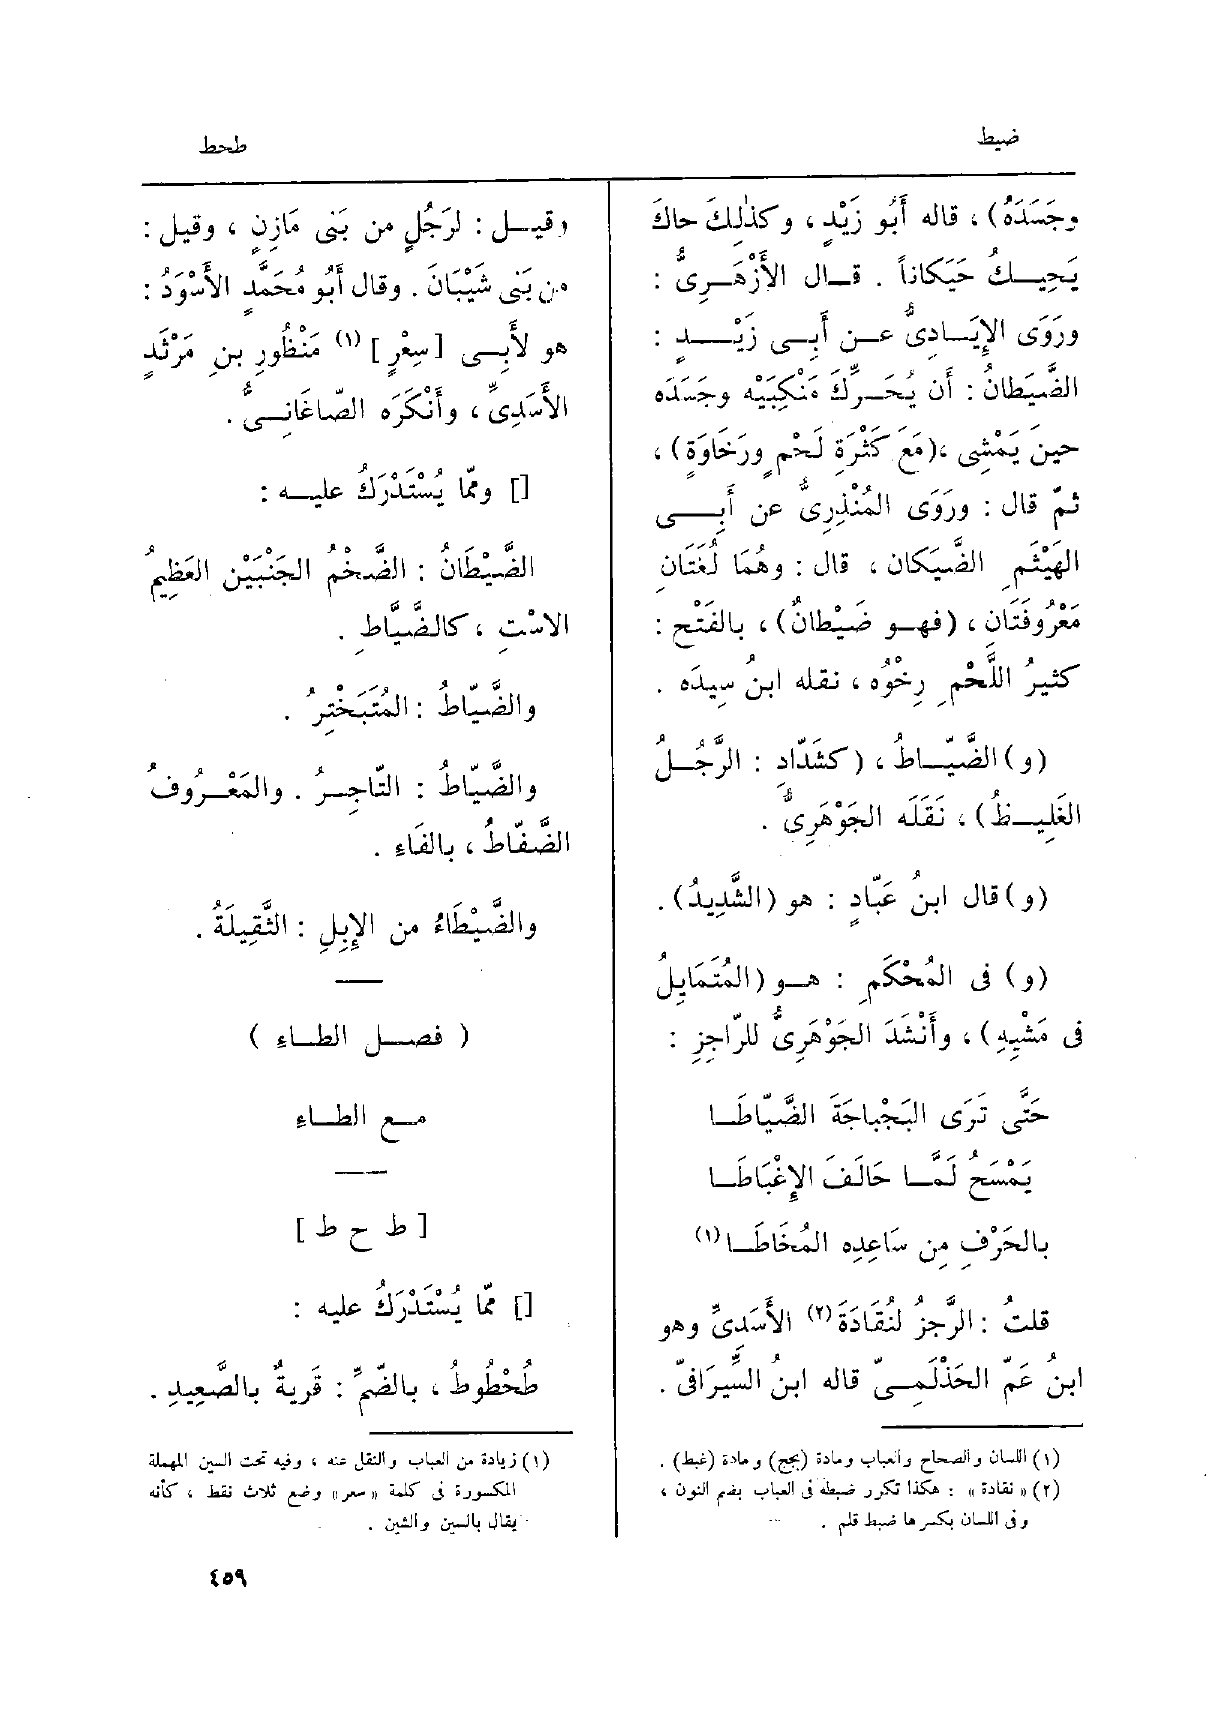 ضيط
طحط
وجَسَدَهُ) ، قاله أَبُو زَيْدٍ ، وكذٰلِكَ حاكَ
يَحِيــكُ حَيَكاناً . قــال الأَزْهَــرِىُّ :
ورَوَى الإِيَــادِىُّ عــن أَبِــى زَيْــــدٍ :
الضَّيَطانُ : أَن يُحَــرِّكَ مَنْكِبَيْه وجَسَدَه
حينَ يَمْشِى ،(مَعَ كَثْرَةِ لَحْمٍ ورَخَاوَةٍ) ،
ثمّ قال : ورَوَى المُنْذِرِىُّ عن أَبِــــى
الهَيْثَمِ الضَّيَكان ، قال : وهُمَا لُغَتَانِ
مَعْرُوفَتَانِ ، (فهــو ضَيْطانٌ) ، بالفَتْح :
كثيرُ اللَّحْمِ رِخْوُه ، نقله ابنُ سِيدَه .
(و) الضَّيّــاطُ ، (كشَدّادٍ : الرَّجُــلُ
الغَلِيــظُ) ، نَقَلَه الجَوْهَرِىُّ .
(و) قال ابنُ عَبّادٍ : هو (الشَّدِيدُ) .
(و) فى المُحْكَمِ : هــو (المُتَمَايِلُ
فى مَشْيِهِ) ، وأَنْشَدَ الجَوْهَرِىُّ للرّاجِزِ :
حَتَّى تَرَى البَجْبَاجَةَ الضَّيّاطَــا
يَمْسَحُ لَمَّــا حَالَفَ الإِغْبَاطَــا
بالحَرْفِ مِن سَاعِدِه المُخَاطَــا(١)
قلتُ : الرَّجزُ لنُقَادَةَ(٢) الأَسَدِىِّ وهو
ابنُ عَمِّ الحَذْلَمِــىِّ قاله ابنُ السِّيرَافىّ .
(١) اللسان والصحاح والعباب ومادة (بجج) ومادة (غبط) .
(٢) « نقادة » : هكذا تكرر ضبطه فى العباب بضم النون ،
وفى اللسان بكسرها ضبط قلم .
وقيــل : لرَجُلٍ من بَنى مَازِنٍ ، وقيل :
من بَنى شَيْبَانَ . وقال أَبُو مُحَمَّدٍ الأَسْوَدُ :
هو لأَبِــى [سِعْرٍ] (١) مَنْظُورِ بنِ مَرْثَدٍ
الأَسَدِىِّ ، وأَنْكَرَه الصّاغَانِــىُّ .
[] وممّا يُسْتَدْرَكُ عليــه :
الضَّيْطَانُ : الضَّخْمُ الجَنْبَيْنِ العَظِيمُ
الاسْتِ ، كالضَّيَّاطِ .
والضَّيّاطُ : المُتَبَخْتِرُ .
والضَّيّاطُ : التّاجِــرُ . والمَعْــرُوفُ
الضَّفّاطُ ، بالفَاءِ .
والضَّيْطَاءُ من الإِبِلِ : الثَّقِيلَةُ .
( فصــل الطــاء )
مــع الطــاء
[ ط ح ط ]
[] ممّا يُسْتَدْرَكُ عليه :
طُحْطُوطُ ، بالضَّمِّ : قَريةٌ بالصَّعِيدِ .
(١) زيادة من العباب والنقل عنه ، وفيه تحت السين المهملة
المكسورة فى كلمة « سعر » وضع ثلاث نقط ، كأنه
يقال بالسين والشين .
٤٥٩